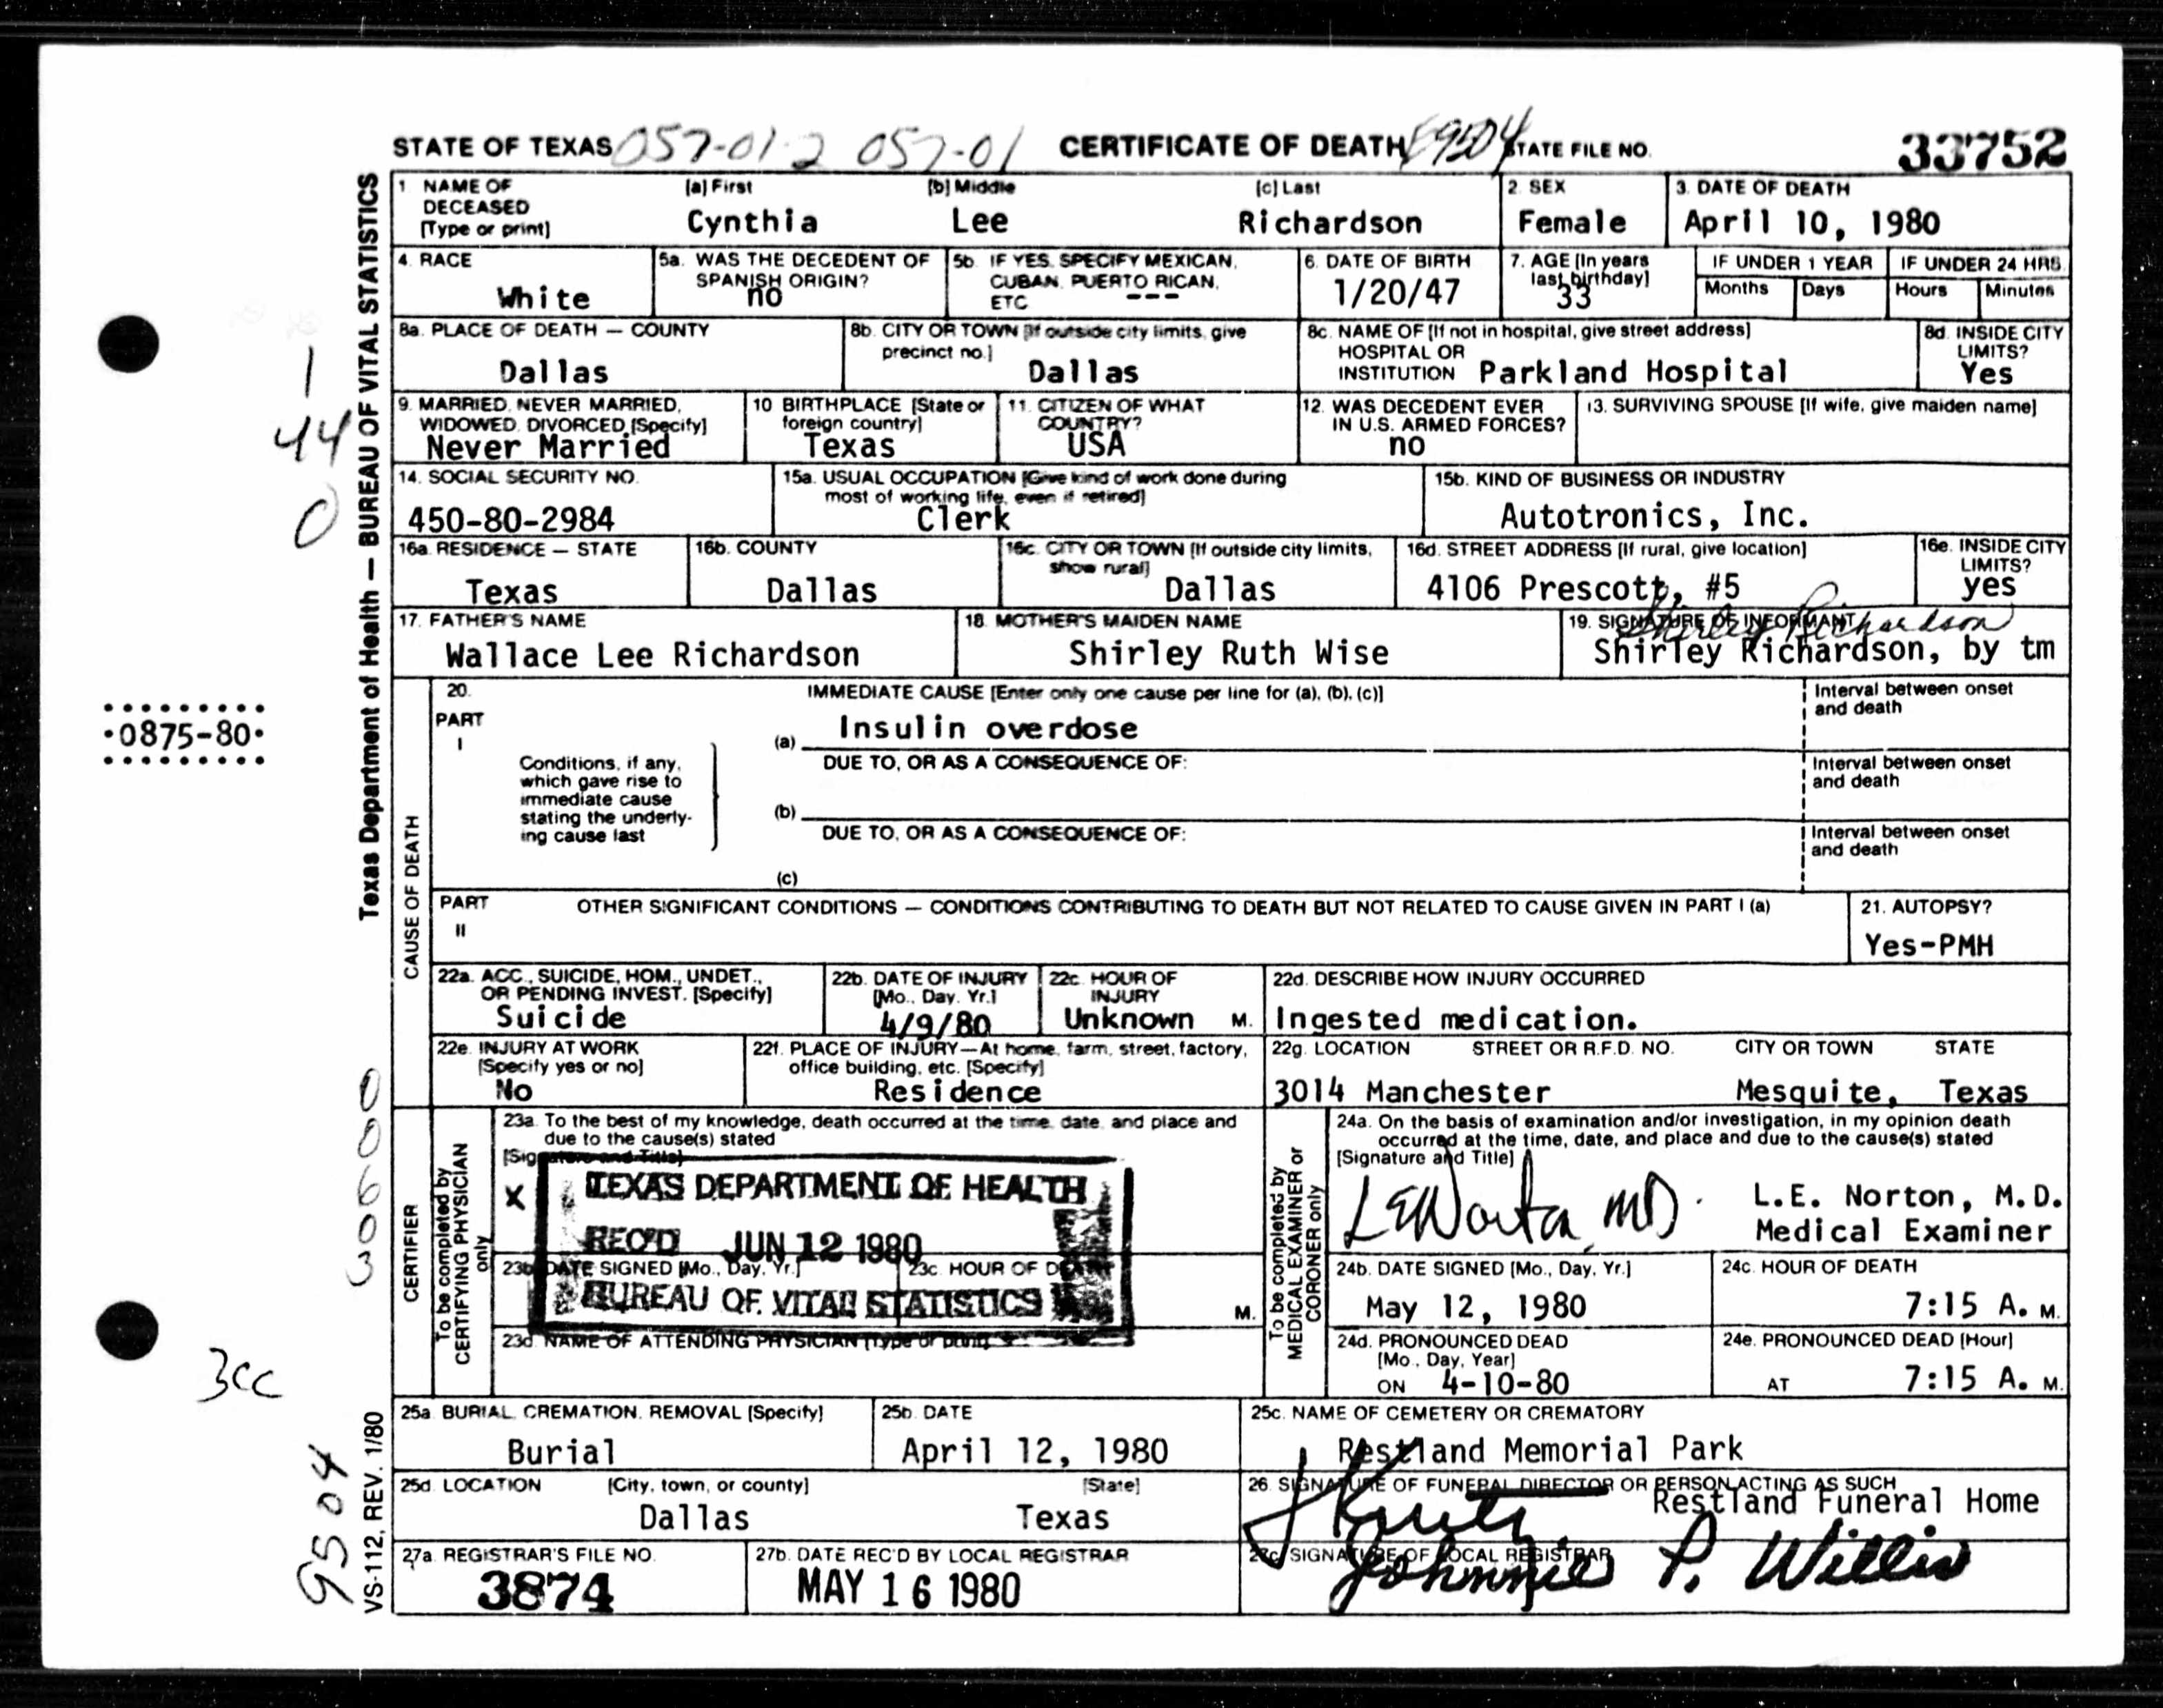 STATE OF TEXAS 057-01-2 057-01 CERTIFICATE OF DEATH STATE FILE NO. 33752
Texas Department of Health — BUREAU OF VITAL STATISTICS
1 NAME OF DECEASED [Type or print] [a] First [b] Middle [c] Last
Cynthia Lee Richardson
2. SEX
Female
3. DATE OF DEATH
April 10, 1980
4. RACE
White
5a. WAS THE DECEDENT OF SPANISH ORIGIN?
no
5b. IF YES, SPECIFY MEXICAN, CUBAN, PUERTO RICAN, ETC
---
6. DATE OF BIRTH
1/20/47
7. AGE [In years last birthday]
33
IF UNDER 1 YEAR
Months Days
IF UNDER 24 HRS.
Hours Minutes
8a. PLACE OF DEATH — COUNTY
Dallas
8b. CITY OR TOWN [If outside city limits, give precinct no.]
Dallas
8c. NAME OF [If not in hospital, give street address] HOSPITAL OR INSTITUTION
Parkland Hospital
8d. INSIDE CITY LIMITS?
Yes
9. MARRIED, NEVER MARRIED, WIDOWED, DIVORCED [Specify]
Never Married
10 BIRTHPLACE [State or foreign country]
Texas
11. CITIZEN OF WHAT COUNTRY?
USA
12. WAS DECEDENT EVER IN U.S. ARMED FORCES?
no
13. SURVIVING SPOUSE [If wife, give maiden name]
14. SOCIAL SECURITY NO.
450-80-2984
15a. USUAL OCCUPATION [Give kind of work done during most of working life, even if retired]
Clerk
15b. KIND OF BUSINESS OR INDUSTRY
Autotronics, Inc.
16a. RESIDENCE — STATE
Texas
16b. COUNTY
Dallas
16c. CITY OR TOWN [If outside city limits, show rural]
Dallas
16d. STREET ADDRESS [If rural, give location]
4106 Prescott, #5
16e. INSIDE CITY LIMITS?
yes
17. FATHER'S NAME
Wallace Lee Richardson
18. MOTHER'S MAIDEN NAME
Shirley Ruth Wise
19. SIGNATURE OF INFORMANT
Shirley Richardson
Shirley Richardson, by tm
CAUSE OF DEATH
20. IMMEDIATE CAUSE [Enter only one cause per line for (a), (b), (c)]
PART I
(a) Insulin overdose
Interval between onset and death
Conditions, if any, which gave rise to immediate cause stating the underlying cause last
DUE TO, OR AS A CONSEQUENCE OF:
(b)
Interval between onset and death
DUE TO, OR AS A CONSEQUENCE OF:
(c)
Interval between onset and death
PART II OTHER SIGNIFICANT CONDITIONS — CONDITIONS CONTRIBUTING TO DEATH BUT NOT RELATED TO CAUSE GIVEN IN PART I (a)
21. AUTOPSY?
Yes-PMH
22a. ACC., SUICIDE, HOM., UNDET., OR PENDING INVEST. [Specify]
Suicide
22b. DATE OF INJURY [Mo., Day, Yr.]
4/9/80
22c. HOUR OF INJURY
Unknown M.
22d. DESCRIBE HOW INJURY OCCURRED
Ingested medication.
22e. INJURY AT WORK [Specify yes or no]
No
22f. PLACE OF INJURY—At home, farm, street, factory, office building, etc. [Specify]
Residence
22g. LOCATION STREET OR R.F.D. NO. CITY OR TOWN STATE
3014 Manchester Mesquite, Texas
CERTIFIER
To be completed by CERTIFYING PHYSICIAN only
23a. To the best of my knowledge, death occurred at the time, date, and place and due to the cause(s) stated
[Signature and Title]
X
TEXAS DEPARTMENT OF HEALTH
REC'D JUN 12 1980
BUREAU OF VITAL STATISTICS
23b. DATE SIGNED [Mo., Day, Yr.]
23c. HOUR OF DEATH
M.
23d. NAME OF ATTENDING PHYSICIAN [Type or print]
To be completed by MEDICAL EXAMINER or CORONER only
24a. On the basis of examination and/or investigation, in my opinion death occurred at the time, date, and place and due to the cause(s) stated
[Signature and Title]
LENorton, MD.
L.E. Norton, M.D.
Medical Examiner
24b. DATE SIGNED [Mo., Day, Yr.]
May 12, 1980
24c. HOUR OF DEATH
7:15 A. M.
24d. PRONOUNCED DEAD [Mo., Day, Year]
ON 4-10-80
24e. PRONOUNCED DEAD [Hour]
AT 7:15 A. M.
25a. BURIAL, CREMATION, REMOVAL [Specify]
Burial
25b. DATE
April 12, 1980
25c. NAME OF CEMETERY OR CREMATORY
Restland Memorial Park
25d. LOCATION [City, town, or county] [State]
Dallas Texas
26. SIGNATURE OF FUNERAL DIRECTOR OR PERSON ACTING AS SUCH
Restland Funeral Home
27a. REGISTRAR'S FILE NO.
3874
27b. DATE REC'D BY LOCAL REGISTRAR
MAY 16 1980
27c. SIGNATURE OF LOCAL REGISTRAR
Johnnie P. Willis
VS-112, REV. 1/80
1
44
0
0875-80
30600
3cc
9504